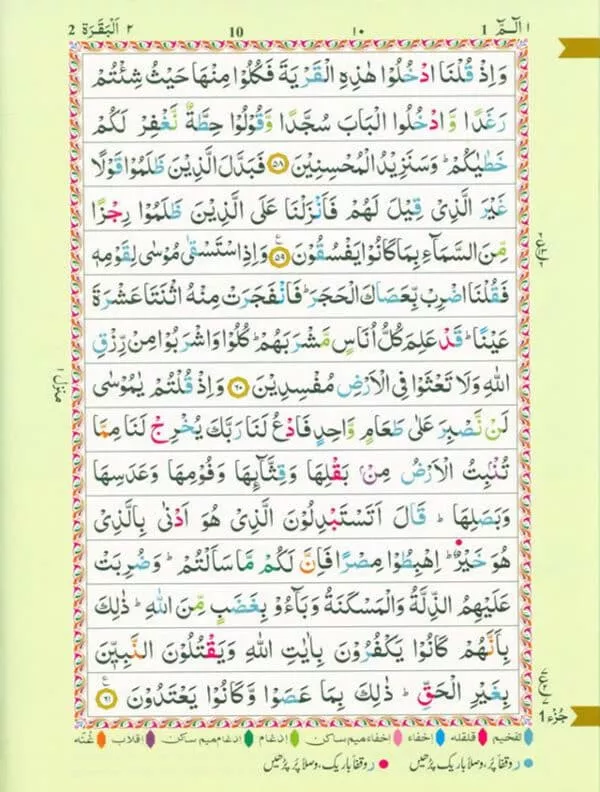 ا الٓمّٓ 1 ١٠ 10 ٢ اَلْبَقَرَة 2
وَاِذْ قُلْنَا ادْخُلُوْا هٰذِهِ الْقَرْيَةَ فَكُلُوْا مِنْهَا حَيْثُ شِئْتُمْ
رَغَدًا وَّادْخُلُوا الْبَابَ سُجَّدًا وَّقُوْلُوْا حِطَّةٌ نَّغْفِرْ لَكُمْ
خَطٰيٰكُمْ ؕ وَسَنَزِيْدُ الْمُحْسِنِيْنَ ﴿٥٨﴾ فَبَدَّلَ الَّذِيْنَ ظَلَمُوْا قَوْلًا
غَيْرَ الَّذِىْ قِيْلَ لَهُمْ فَاَنْزَلْنَا عَلَى الَّذِيْنَ ظَلَمُوْا رِجْزًا
مِّنَ السَّمَآءِ بِمَا كَانُوْا يَفْسُقُوْنَ ﴿٥٩﴾ ع وَاِذِ اسْتَسْقٰى مُوْسٰى لِقَوْمِهٖ
فَقُلْنَا اضْرِبْ بِّعَصَاكَ الْحَجَرَ ؕ فَانْفَجَرَتْ مِنْهُ اثْنَتَا عَشْرَةَ
عَيْنًا ؕ قَدْ عَلِمَ كُلُّ اُنَاسٍ مَّشْرَبَهُمْ ؕ كُلُوْا وَاشْرَبُوْا مِنْ رِّزْقِ
اللّٰهِ وَلَا تَعْثَوْا فِى الْاَرْضِ مُفْسِدِيْنَ ﴿٦٠﴾ وَاِذْ قُلْتُمْ يٰمُوْسٰى
منزل ١
لَنْ نَّصْبِرَ عَلٰى طَعَامٍ وَّاحِدٍ فَادْعُ لَنَا رَبَّكَ يُخْرِجْ لَنَا مِمَّا
تُنْۢبِتُ الْاَرْضُ مِنْۢ بَقْلِهَا وَقِثَّآئِهَا وَفُوْمِهَا وَعَدَسِهَا
وَبَصَلِهَا ؕ قَالَ اَتَسْتَبْدِلُوْنَ الَّذِىْ هُوَ اَدْنٰى بِالَّذِىْ
هُوَ خَيْرٌ ؕ اِهْبِطُوْا مِصْرًا فَاِنَّ لَكُمْ مَّا سَاَلْتُمْ ؕ وَضُرِبَتْ
عَلَيْهِمُ الذِّلَّةُ وَالْمَسْكَنَةُ وَبَآءُوْ بِغَضَبٍ مِّنَ اللّٰهِ ؕ ذٰلِكَ
بِاَنَّهُمْ كَانُوْا يَكْفُرُوْنَ بِاٰيٰتِ اللّٰهِ وَيَقْتُلُوْنَ النَّبِيّٖنَ
بِغَيْرِ الْحَقِّ ؕ ذٰلِكَ بِمَا عَصَوْا وَّكَانُوْا يَعْتَدُوْنَ ﴿٦١﴾ ع
جُزء 1
تفخيم قلقله إخفاء إخفاء ميم ساكن إدغام إدغام ميم ساكن إقلاب غُنّه
ر وقفاً پر، وصلاً باریک پڑھیں ر وقفاً باریک، وصلاً پر پڑھیں